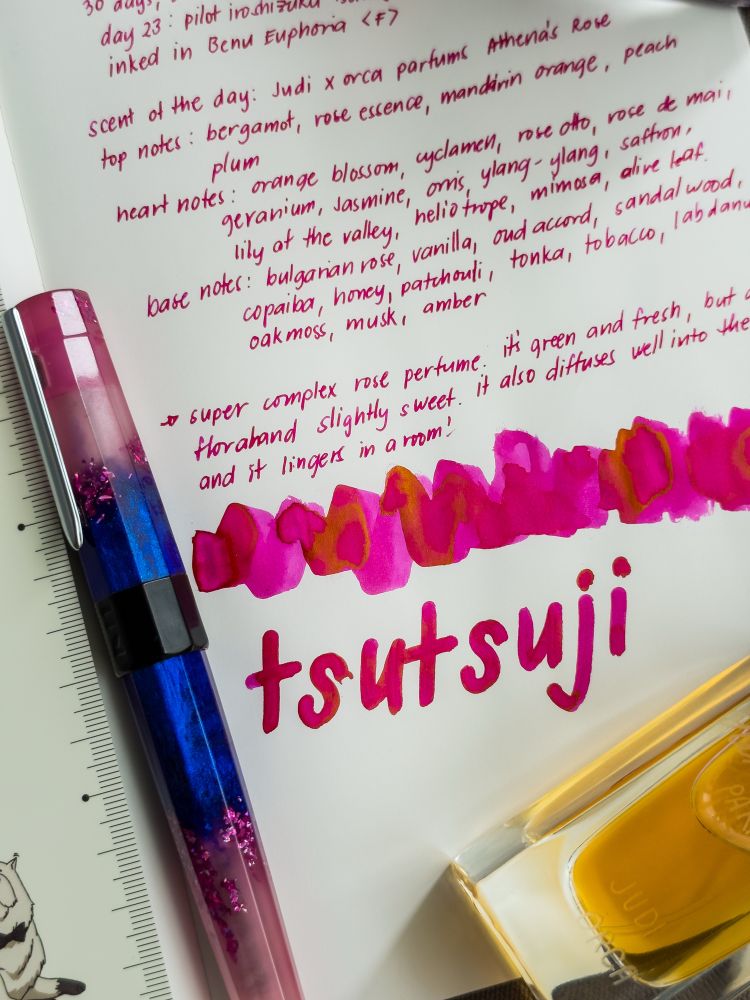 30 days,
day 23: pilot iroshizuku
inked in Benu Euphoria <F>
scent of the day: Judi x orca parfums Athena's Rose
top notes: bergamot, rose essence, mandarin orange, peach
plum
heart notes: orange blossom, cyclamen, rose otto, rose de mai,
geranium, Jasmine, orris, ylang-ylang, saffron,
lily of the valley, heliotrope, mimosa, alive leaf.
base notes: bulgarian rose, vanilla, oud accord, sandalwood,
copaiba, honey, patchouli, tonka, tobacco, labdanu
oakmoss, musk, amber
→ super complex rose perfume. it's green and fresh, but a
floral and slightly sweet. it also diffuses well into the
and it lingers in a room!
tsutsuji
JUDI
ORCA